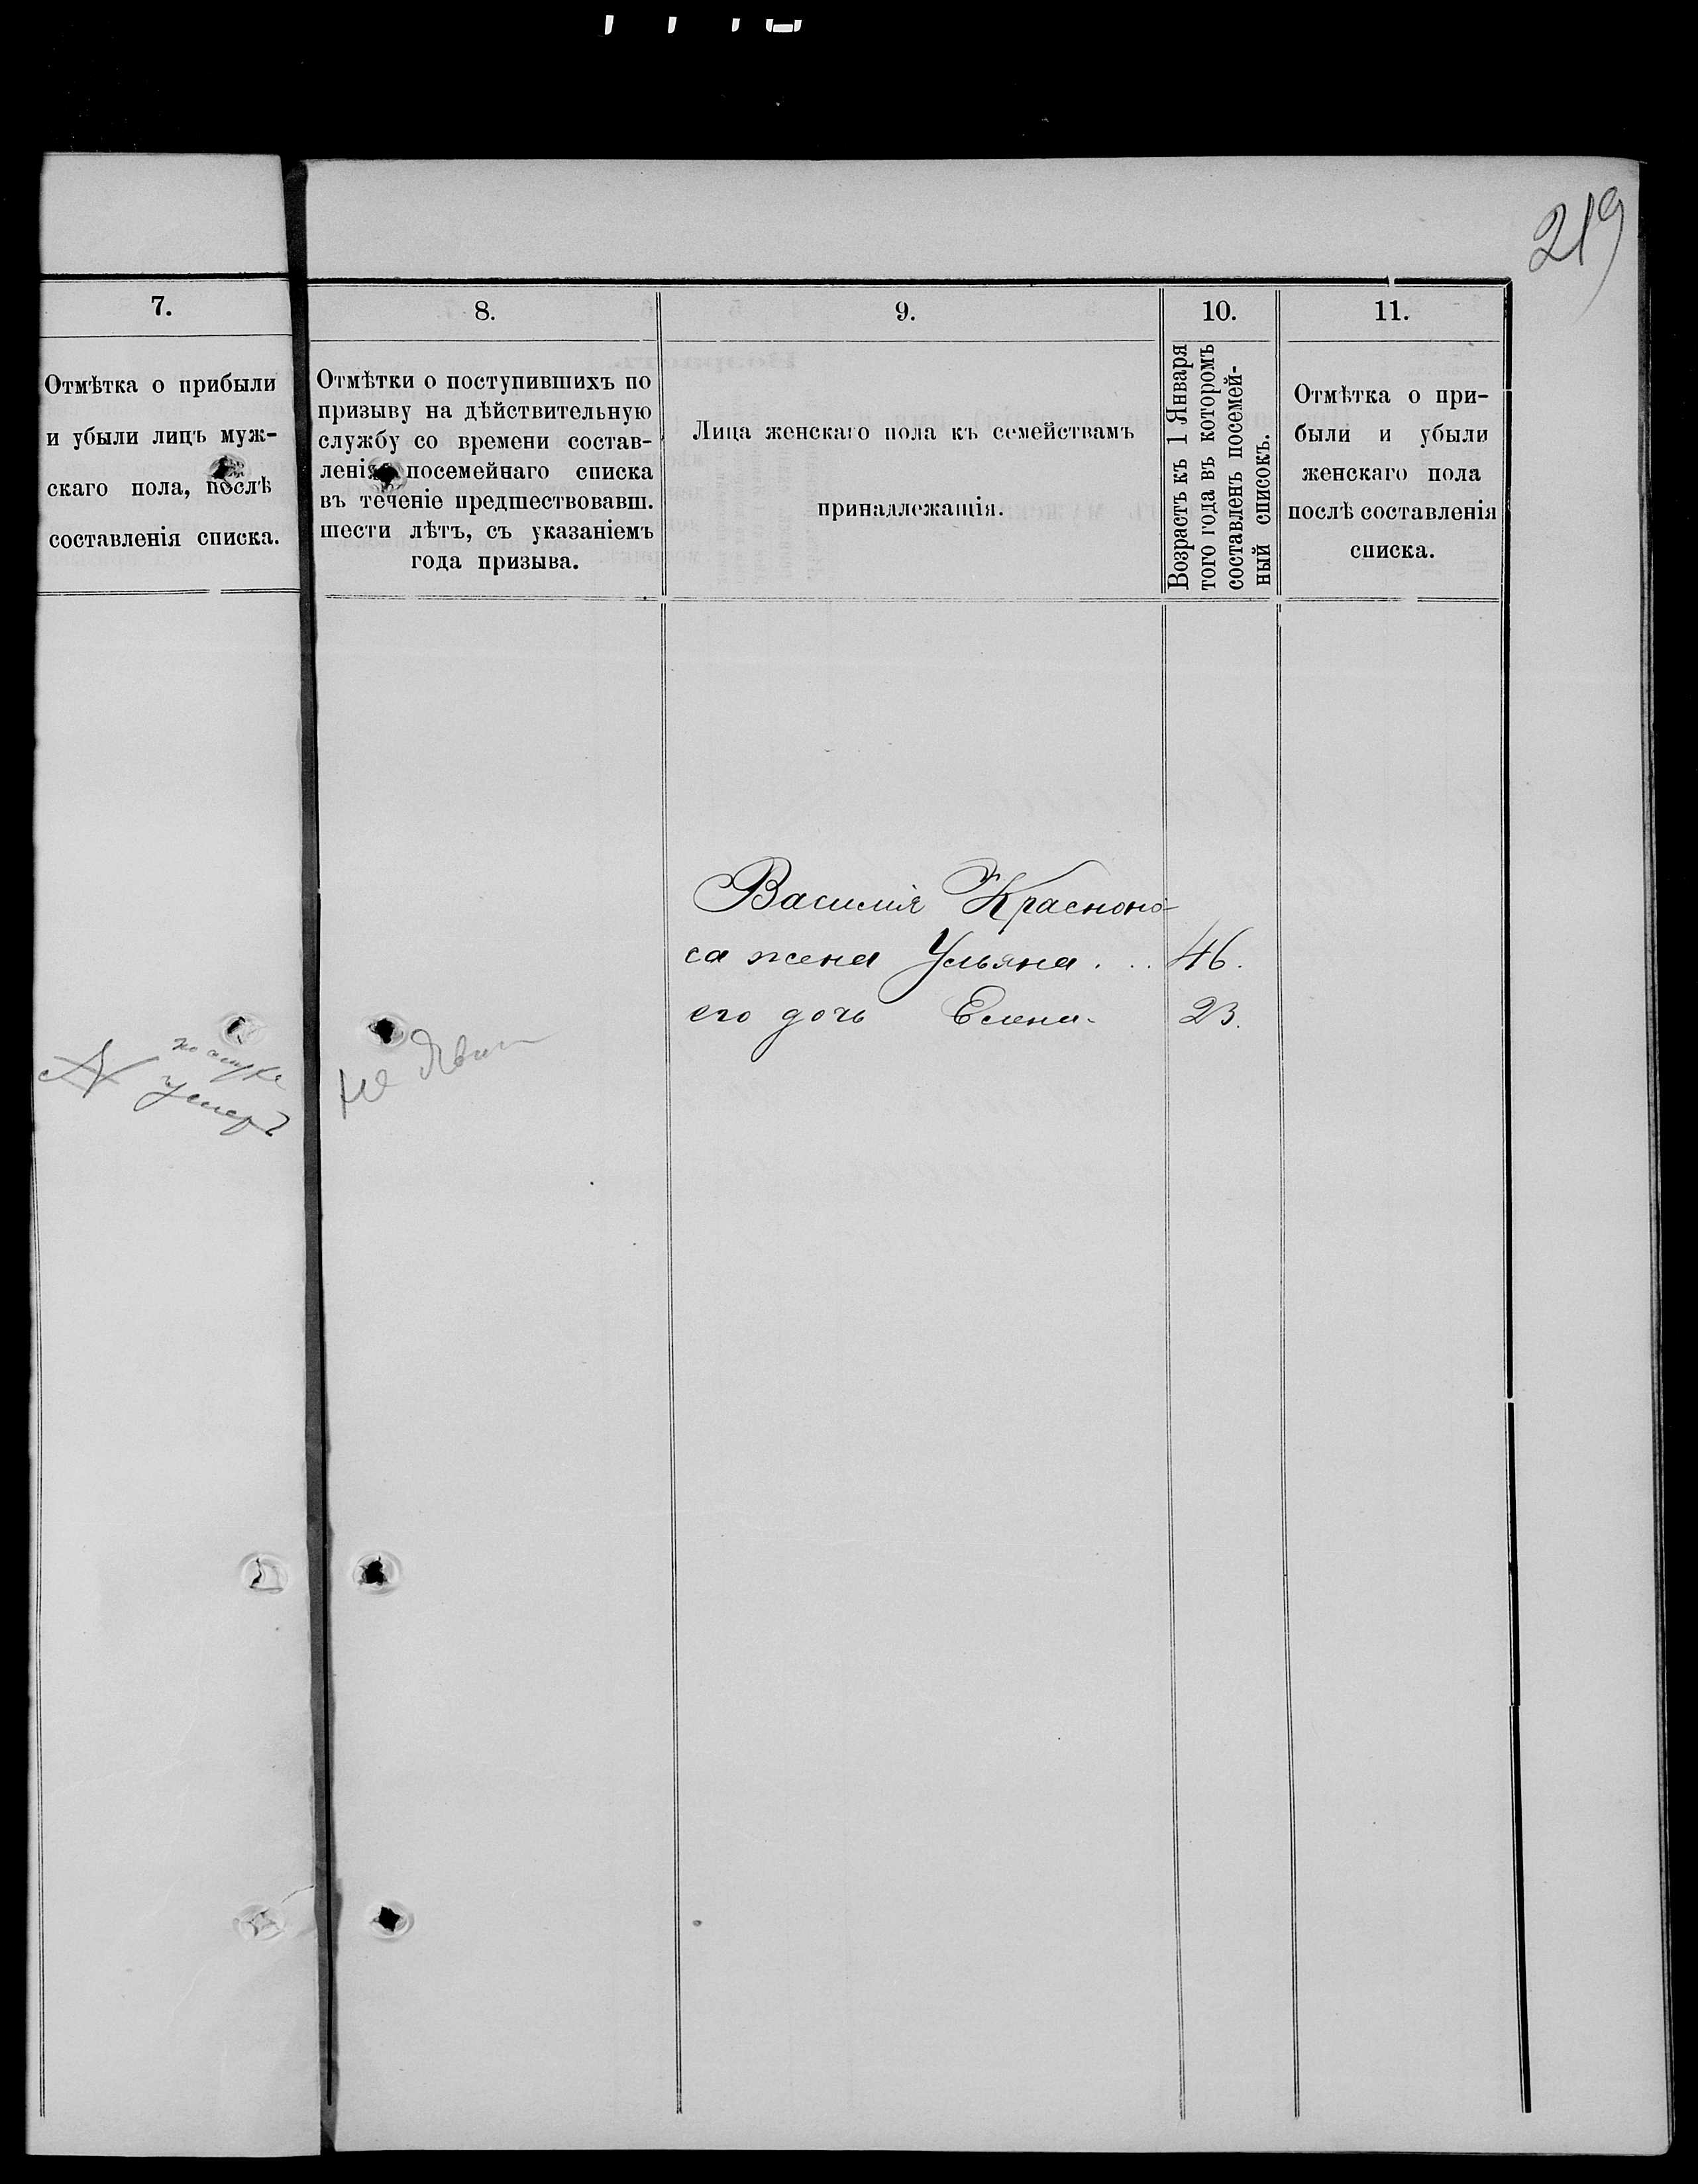 219
7.
Отмѣтка о прибыли
и убыли лицъ муж-
скаго пола, послѣ
составленія списка.
8.
Отмѣтки о поступившихъ по
призыву на дѣйствительную
службу со времени состав-
ленія посемейнаго списка
въ теченіе предшествовавш.
шести лѣтъ, съ указаніемъ
года призыва.
9.
Лица женскаго пола къ семействамъ
принадлежащія.
10.
Возрастъ къ 1 Января
того года въ которомъ
составленъ посемей-
ный списокъ.
11.
Отмѣтка о при-
были и убыли
женскаго пола
послѣ составленія
списка.
Василія Красноно-
са жена Ульяна . . . 46.
его дочь Елена 23.
умеръ
не явил